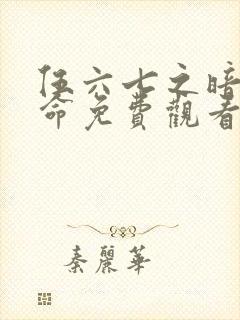 伍六七之暗
命免費觀看
秦麗華